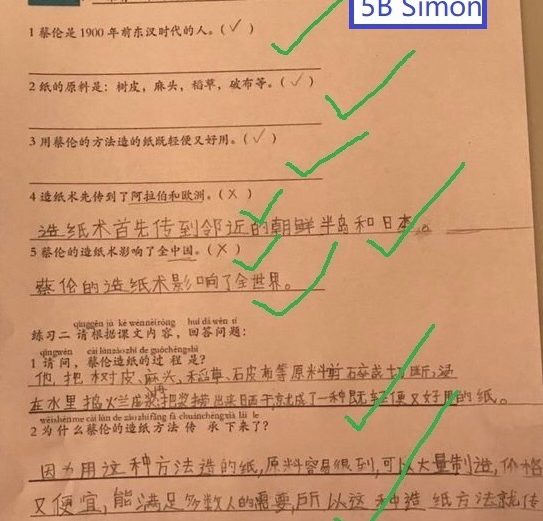 5B Simon
1 蔡伦是 1900 年前东汉时代的人。(✓)
2 纸的原料是：树皮，麻头，稻草，破布等。(✓)
3 用蔡伦的方法造的纸既轻便又好用。(✓)
4 造纸术先传到了阿拉伯和欧洲。(X)
造纸术首先传到邻近的朝鲜半岛和日本。
5 蔡伦的造纸术影响了全中国。(X)
蔡伦的造纸术影响了全世界。
qǐnggēn jù kè wénnèiróng huí dá wèn tí
练习二 请根据课文内容，回答问题：
qǐngwèn cài lúnzàozhǐ de guòchéngshì
1 请问，蔡伦造纸的过程是?
他把树皮、麻头、稻草、石皮布等原料剪碎或切断，浸
在水里捣火兰成浆再把浆捞出来晒干，就成了一种既轻便又好用的纸。
wèishénme cài lún de zào zhǐfāng fǎ chuánchéngxià lái le
2 为什么蔡伦的造纸方法传承下来了?
因为用这种方法造的纸，原料容易很到，可以大量制造，价格
又便宜，能满足多数人的需要，所以这种造纸方法就传